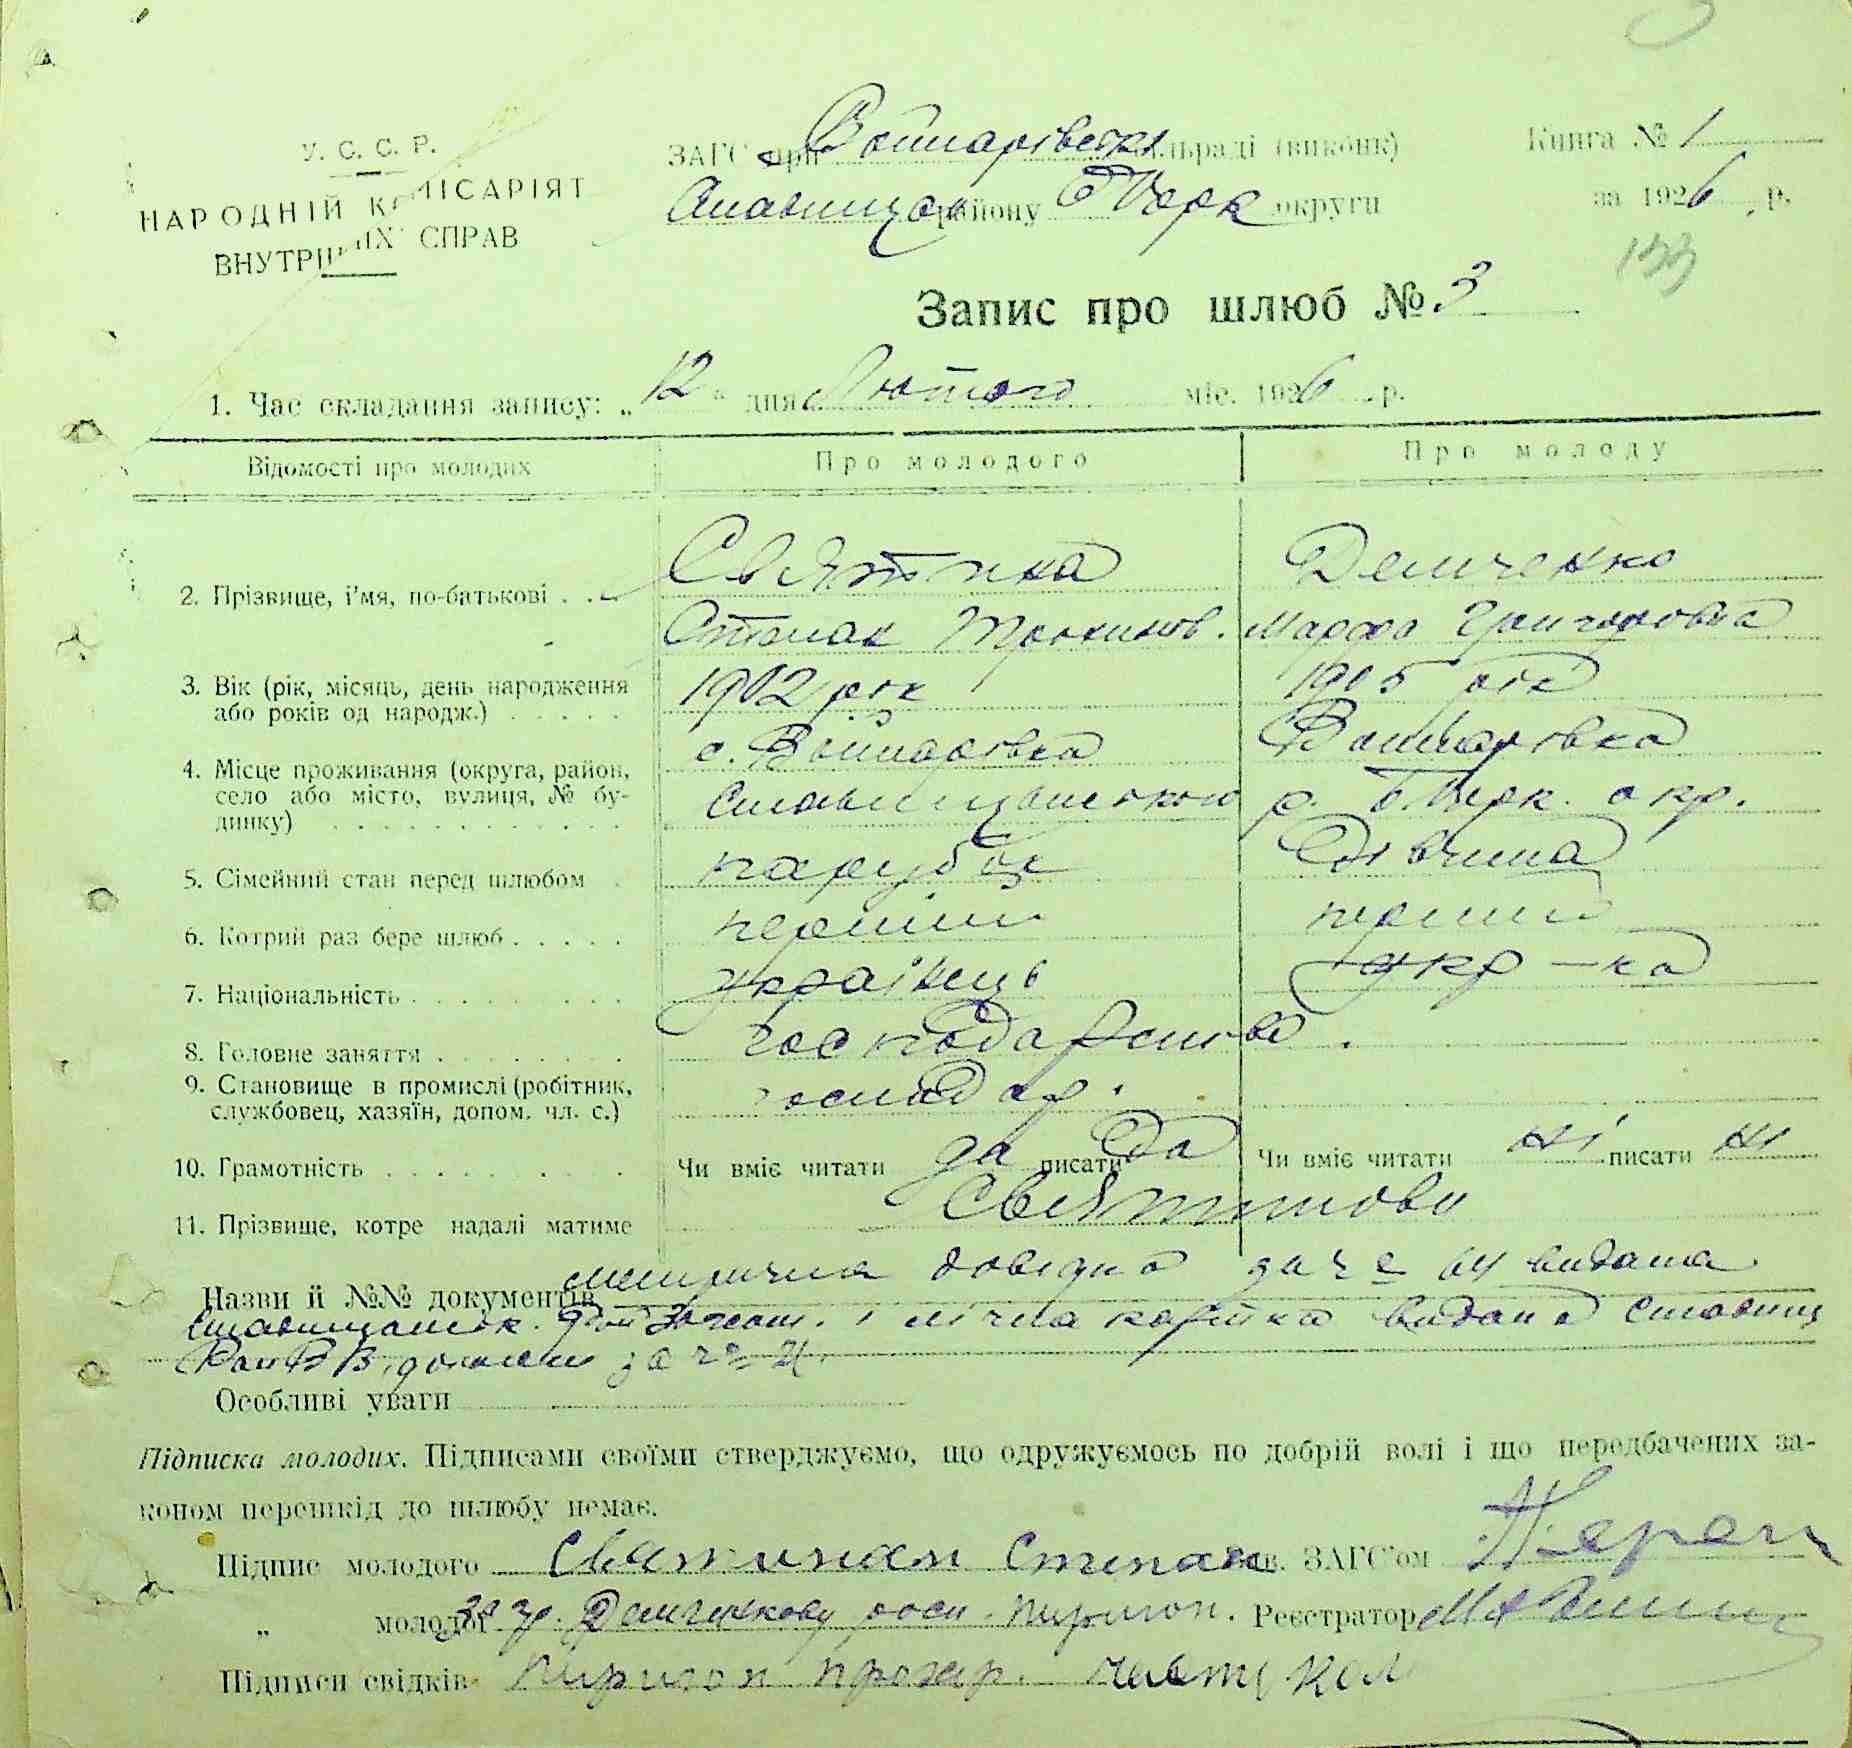 У. С. С. Р.
НАРОДНІЙ КОМІСАРІЯТ
ВНУТРІШНІХ СПРАВ
ЗАГС при Войнарівській сільраді (виконк)
району БЦерк округи
Книга № 1
за 1926 р.
133
Запис про шлюб № 3
1. Час складання запису: „12" дня Лютого міс. 1926 р.
Відомості про молодих
Про молодого
Про молоду
2. Прізвище, і'мя, по-батькові
Демченко
Степан Трохимов.
Марфа Григоровна
3. Вік (рік, місяць, день народження
або років од народж.)
1902 рік
1905 рік
4. Місце проживання (округа, район,
село або місто, вулиця, № бу-
динку)
с. Войнарівка
Войнарівка
р. БЦерк. окр.
5. Сімейний стан перед шлюбом
парубок
Дівчина
6. Котрий раз бере шлюб
перший
перший
7. Національність
українець
укр-ка
8. Головне заняття
господарство.
9. Становище в промислі (робітник,
службовец, хазяїн, допом. чл. с.)
господар.
10. Грамотність
Чи вміє читати да писати да
Чи вміє читати ні писати ні
11. Прізвище, котре надалі матиме
Назви й №№ документів метрична довідка за ч 64 видана
і лічна картка видана Ставищ
за ч
Особливі уваги
Підписка молодих. Підписами своїми стверджуємо, що одружуємось по добрій волі і що передбачених за-
коном перешкід до шлюбу немає.
Підпис молодого Степан Зав. ЗАГС'ом
„ молодої Реєстратор
Підписи свідків